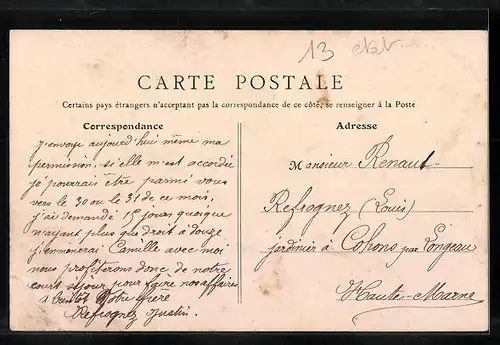 13
CARTE POSTALE
Certains pays étrangers n'acceptant pas la correspondance de ce côté, se renseigner à la Poste
Correspondance
J'envoye aujourd'hui même ma
permission, si elle m'est accordée
je pourrais être parmi vous
vers le 30 ou le 31 de ce mois,
j'ai demandé 15 jours quoique
n'ayant plus que droit à douze
j'emmenerai Camille avec moi
nous profiterons donc de notre
court séjour pour faire nos affaires
à bientôt Votre frère
Refrognez Justin.
Adresse
Monsieur Renaut
Refrognez (Louis)
jardinier à Cohons par Longeau
Haute-Marne